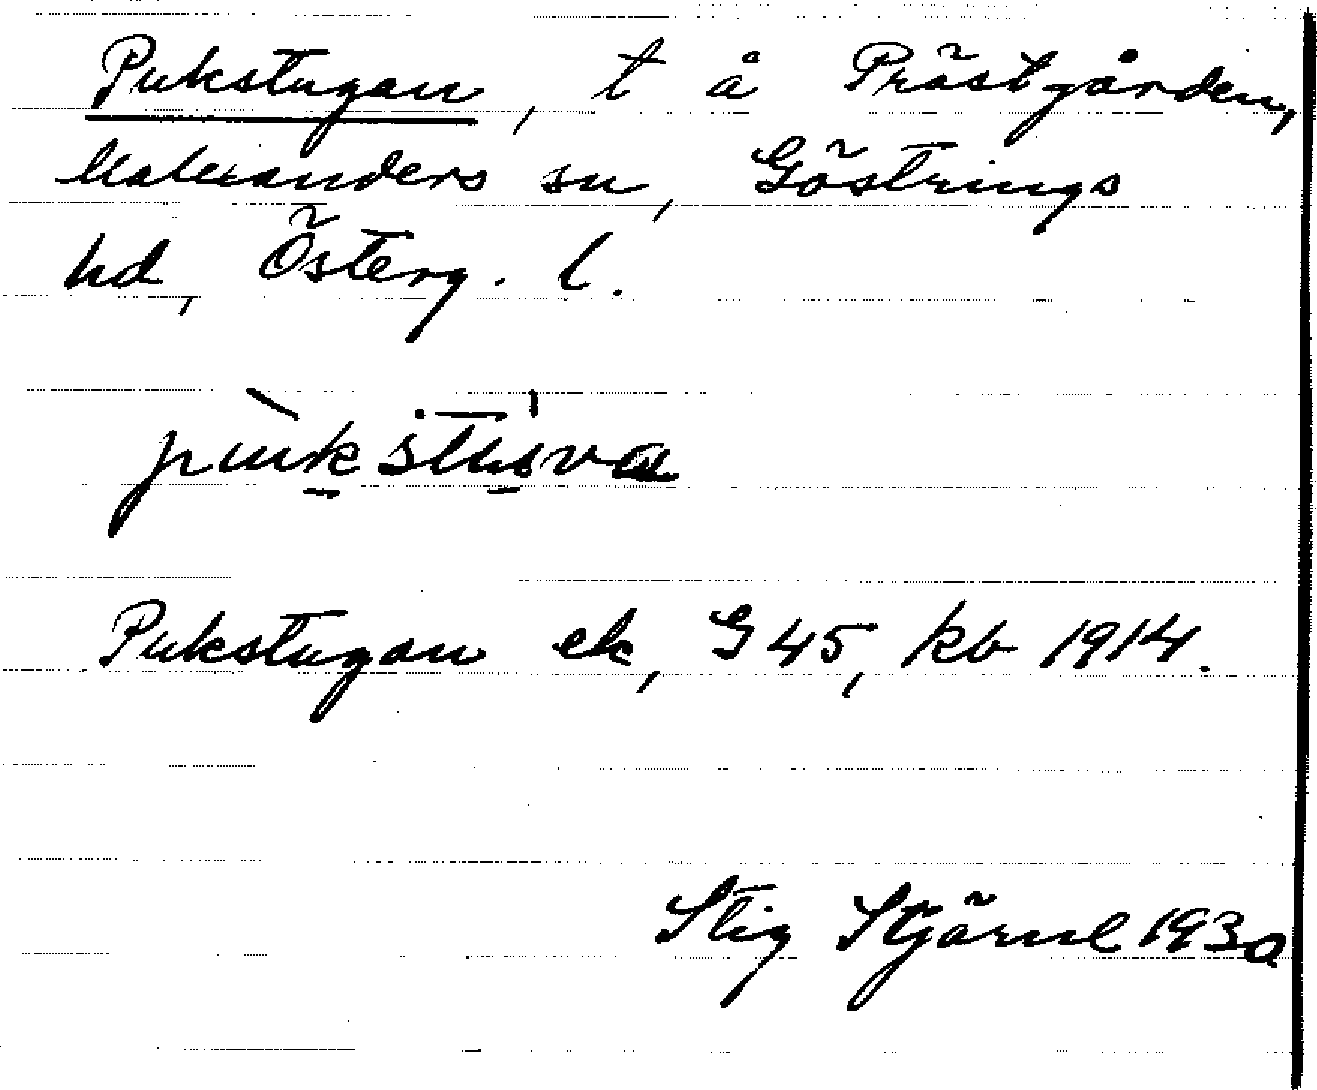 Pukstugan, t å Prästgården,
Malexanders sn, Göstrings
hd, Österg. l.
Pukstugan ek, G 45, kb 1914.
Stig Stjärnl 1930